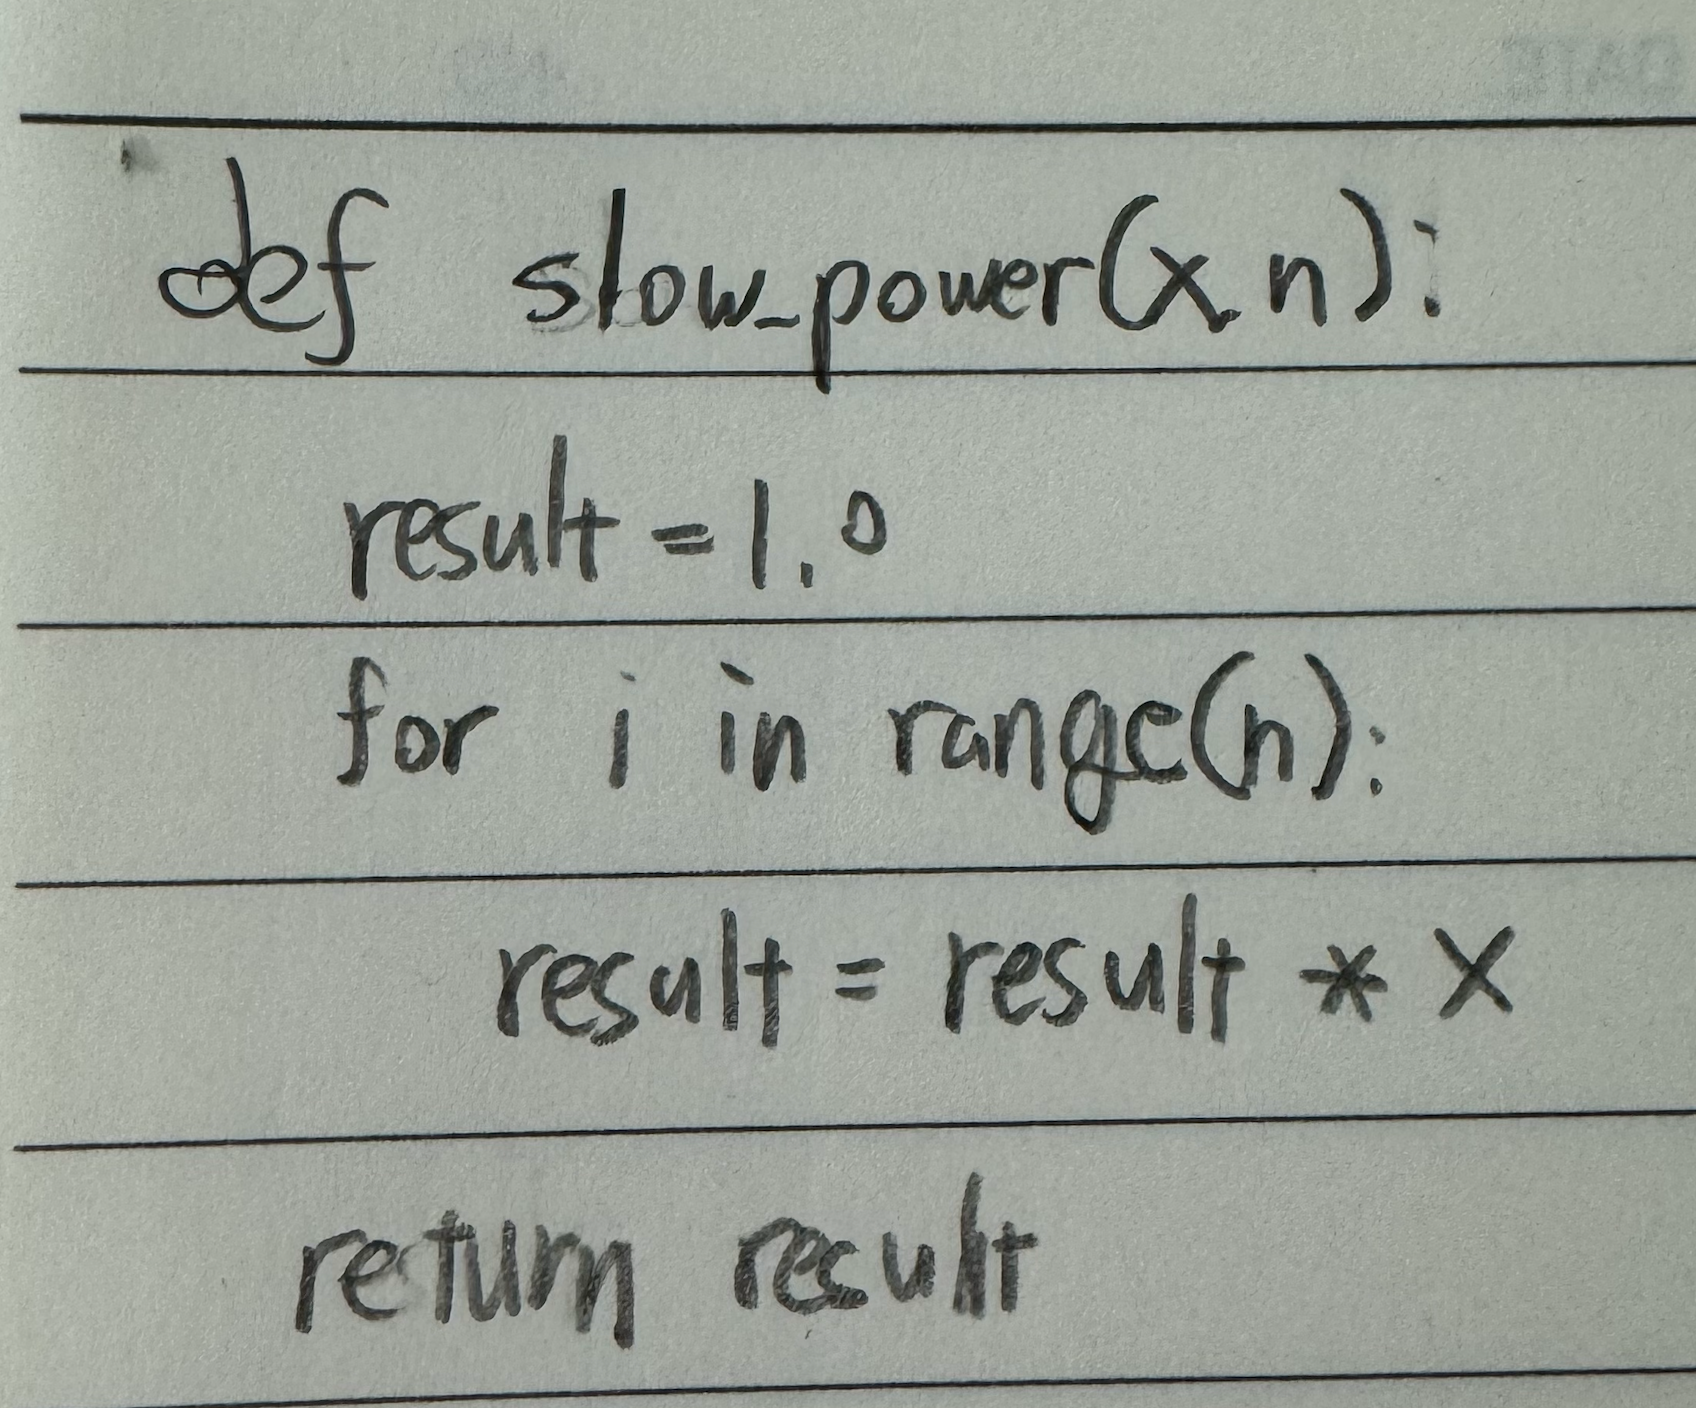 def slow_power(x, n):
result = 1.0
for i in range(n):
result = result * x
return result